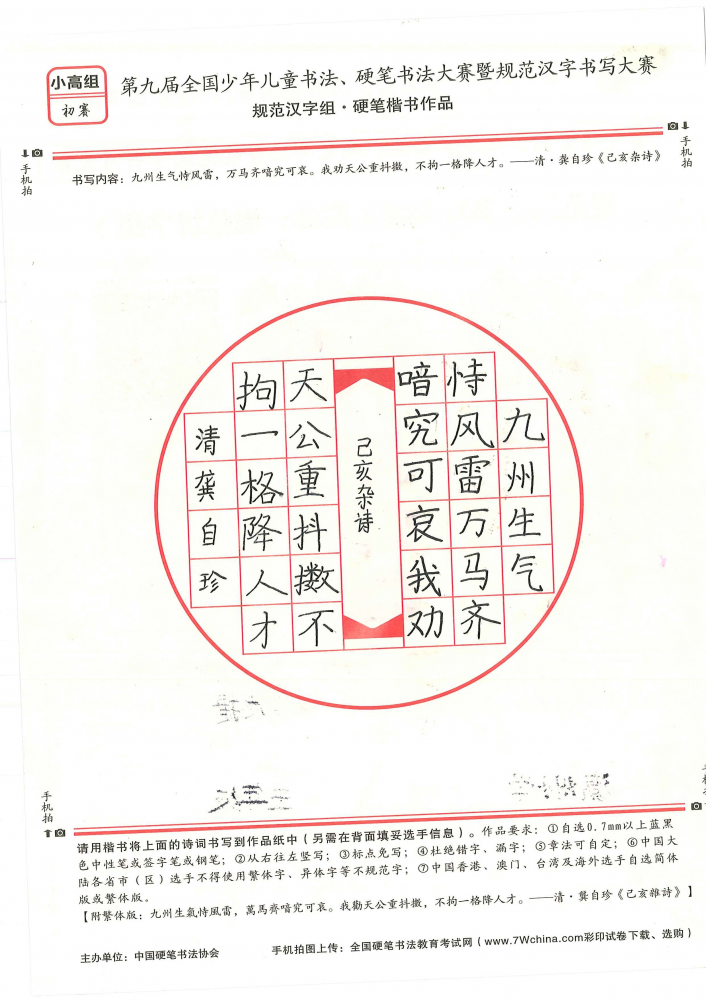 小高组
初赛
第九届全国少年儿童书法、硬笔书法大赛暨规范汉字书写大赛
规范汉字组·硬笔楷书作品
手机拍
手机拍
书写内容：九州生气恃风雷，万马齐喑究可哀。我劝天公重抖擞，不拘一格降人才。——清·龚自珍《己亥杂诗》
九州生气
恃风雷万马齐
喑究可哀我劝
己亥杂诗
天公重抖擞不
拘一格降人才
清龚自珍
手机拍
请用楷书将上面的诗词书写到作品纸中（另需在背面填妥选手信息）。作品要求：①自选0.7mm以上蓝黑
色中性笔或签字笔或钢笔；②从右往左竖写；③标点免写；④杜绝错字、漏字；⑤章法可自定；⑥中国大
陆各省市（区）选手不得使用繁体字、异体字等不规范字；⑦中国香港、澳门、台湾及海外选手自选简体
版或繁体版。
【附繁体版：九州生氣恃風雷，萬馬齊喑究可哀。我勸天公重抖擻，不拘一格降人才。——清·龔自珍《己亥雜詩》】
主办单位：中国硬笔书法协会
手机拍图上传：全国硬笔书法教育考试网（www.7Wchina.com彩印试卷下载、选购）